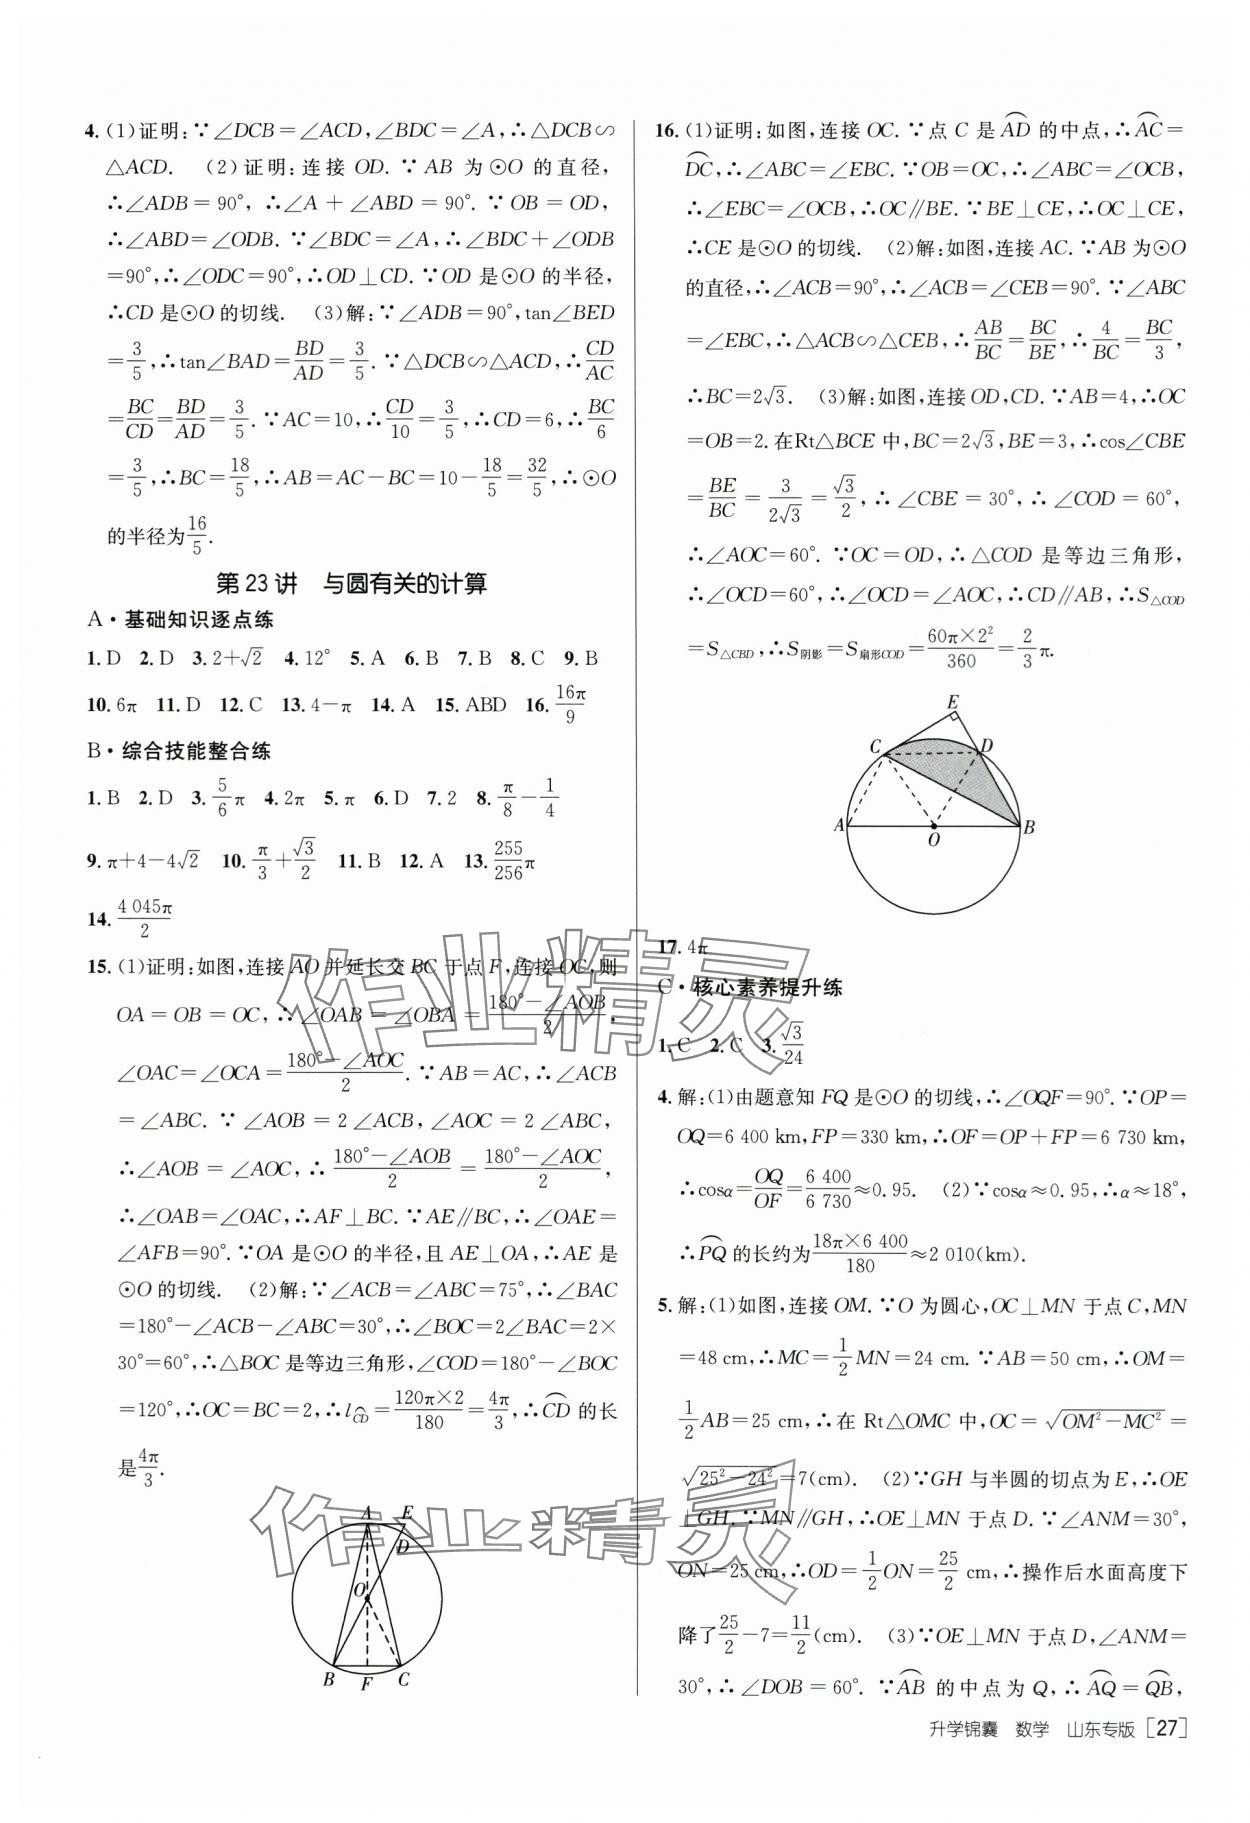 4. (1)证明:∵∠DCB=∠ACD,∠BDC=∠A,∴△DCB∽
△ACD. (2)证明:连接 OD.∵AB 为⊙O 的直径,
∴∠ADB=90°,∴∠A+∠ABD=90°.∵OB=OD,
∴∠ABD=∠ODB.∵∠BDC=∠A,∴∠BDC+∠ODB
=90°,∴∠ODC=90°,∴OD⊥CD.∵OD 是⊙O 的半径,
∴CD 是⊙O 的切线. (3)解:∵∠ADB=90°,tan∠BED
=3/5,∴tan∠BAD=BD/AD=3/5.∵△DCB∽△ACD,∴CD/AC
=BC/CD=BD/AD=3/5.∵AC=10,∴CD/10=3/5,∴CD=6,∴BC/6
=3/5,∴BC=18/5,∴AB=AC-BC=10-18/5=32/5,∴⊙O
的半径为16/5.
第 23 讲 与圆有关的计算
A·基础知识逐点练
1. D 2. D 3. 2+√2 4. 12° 5. A 6. B 7. B 8. C 9. B
10. 6π 11. D 12. C 13. 4-π 14. A 15. ABD 16. 16π/9
B·综合技能整合练
1. B 2. D 3. 5/6π 4. 2π 5. π 6. D 7. 2 8. π/8-1/4
9. π+4-4√2 10. π/3+√3/2 11. B 12. A 13. 255/256π
14. 4 045π/2
15. (1)证明:如图,连接 AO 并延长交 BC 于点 F,连接 OC,则
OA=OB=OC,∴∠OAB=∠OBA=(180°-∠AOB)/2,
∠OAC=∠OCA=(180°-∠AOC)/2.∵AB=AC,∴∠ACB
=∠ABC.∵∠AOB=2∠ACB,∠AOC=2∠ABC,
∴∠AOB=∠AOC,∴(180°-∠AOB)/2=(180°-∠AOC)/2,
∴∠OAB=∠OAC,∴AF⊥BC.∵AE∥BC,∴∠OAE=
∠AFB=90°.∵OA 是⊙O 的半径,且 AE⊥OA,∴AE 是
⊙O 的切线. (2)解:∵∠ACB=∠ABC=75°,∴∠BAC
=180°-∠ACB-∠ABC=30°,∴∠BOC=2∠BAC=2×
30°=60°,∴△BOC 是等边三角形,∠COD=180°-∠BOC
=120°,∴OC=BC=2,∴l⌒CD=120π×2/180=4π/3,∴⌒CD 的长
是4π/3.
A E
D
O
B F C
16. (1)证明:如图,连接 OC.∵点 C 是 ⌒AD 的中点,∴⌒AC=
⌒DC,∴∠ABC=∠EBC.∵OB=OC,∴∠ABC=∠OCB,
∴∠EBC=∠OCB,∴OC∥BE.∵BE⊥CE,∴OC⊥CE,
∴CE 是⊙O 的切线. (2)解:如图,连接 AC.∵AB 为⊙O
的直径,∴∠ACB=90°,∴∠ACB=∠CEB=90°.∵∠ABC
=∠EBC,∴△ACB∽△CEB,∴AB/BC=BC/BE,∴4/BC=BC/3,
∴BC=2√3. (3)解:如图,连接 OD,CD.∵AB=4,∴OC
=OB=2.在Rt△BCE 中,BC=2√3,BE=3,∴cos∠CBE
=BE/BC=3/2√3=√3/2,∴∠CBE=30°,∴∠COD=60°,
∴∠AOC=60°.∵OC=OD,∴△COD 是等边三角形,
∴∠OCD=60°,∴∠OCD=∠AOC,∴CD∥AB,∴S△COD
=S△CBD,∴S阴影=S扇形COD=60π×2²/360=2/3π.
E
C D
A O B
17. 4π
C·核心素养提升练
1. C 2. C 3. √3/24
4. 解:(1)由题意知 FQ 是⊙O 的切线,∴∠OQF=90°.∵OP=
OQ=6 400 km,FP=330 km,∴OF=OP+FP=6 730 km,
∴cosα=OQ/OF=6 400/6 730≈0.95. (2)∵cosα≈0.95,∴α≈18°,
∴⌒PQ 的长约为18π×6 400/180≈2 010(km).
5. 解:(1)如图,连接 OM.∵O 为圆心,OC⊥MN 于点 C,MN
=48 cm,∴MC=1/2MN=24 cm.∵AB=50 cm,∴OM=
1/2AB=25 cm,∴在 Rt△OMC 中,OC=√(OM²-MC²)=
√(25²-24²)=7(cm). (2)∵GH 与半圆的切点为 E,∴OE
⊥GH.∵MN∥GH,∴OE⊥MN 于点 D.∵∠ANM=30°,
ON=25 cm,∴OD=1/2ON=25/2 cm,∴操作后水面高度下
降了25/2-7=11/2(cm). (3)∵OE⊥MN 于点 D,∠ANM=
30°,∴∠DOB=60°.∵⌒AB 的中点为 Q,∴⌒AQ=⌒QB,
作业精灵
作业精灵
升学锦囊 数学 山东专版 [27]